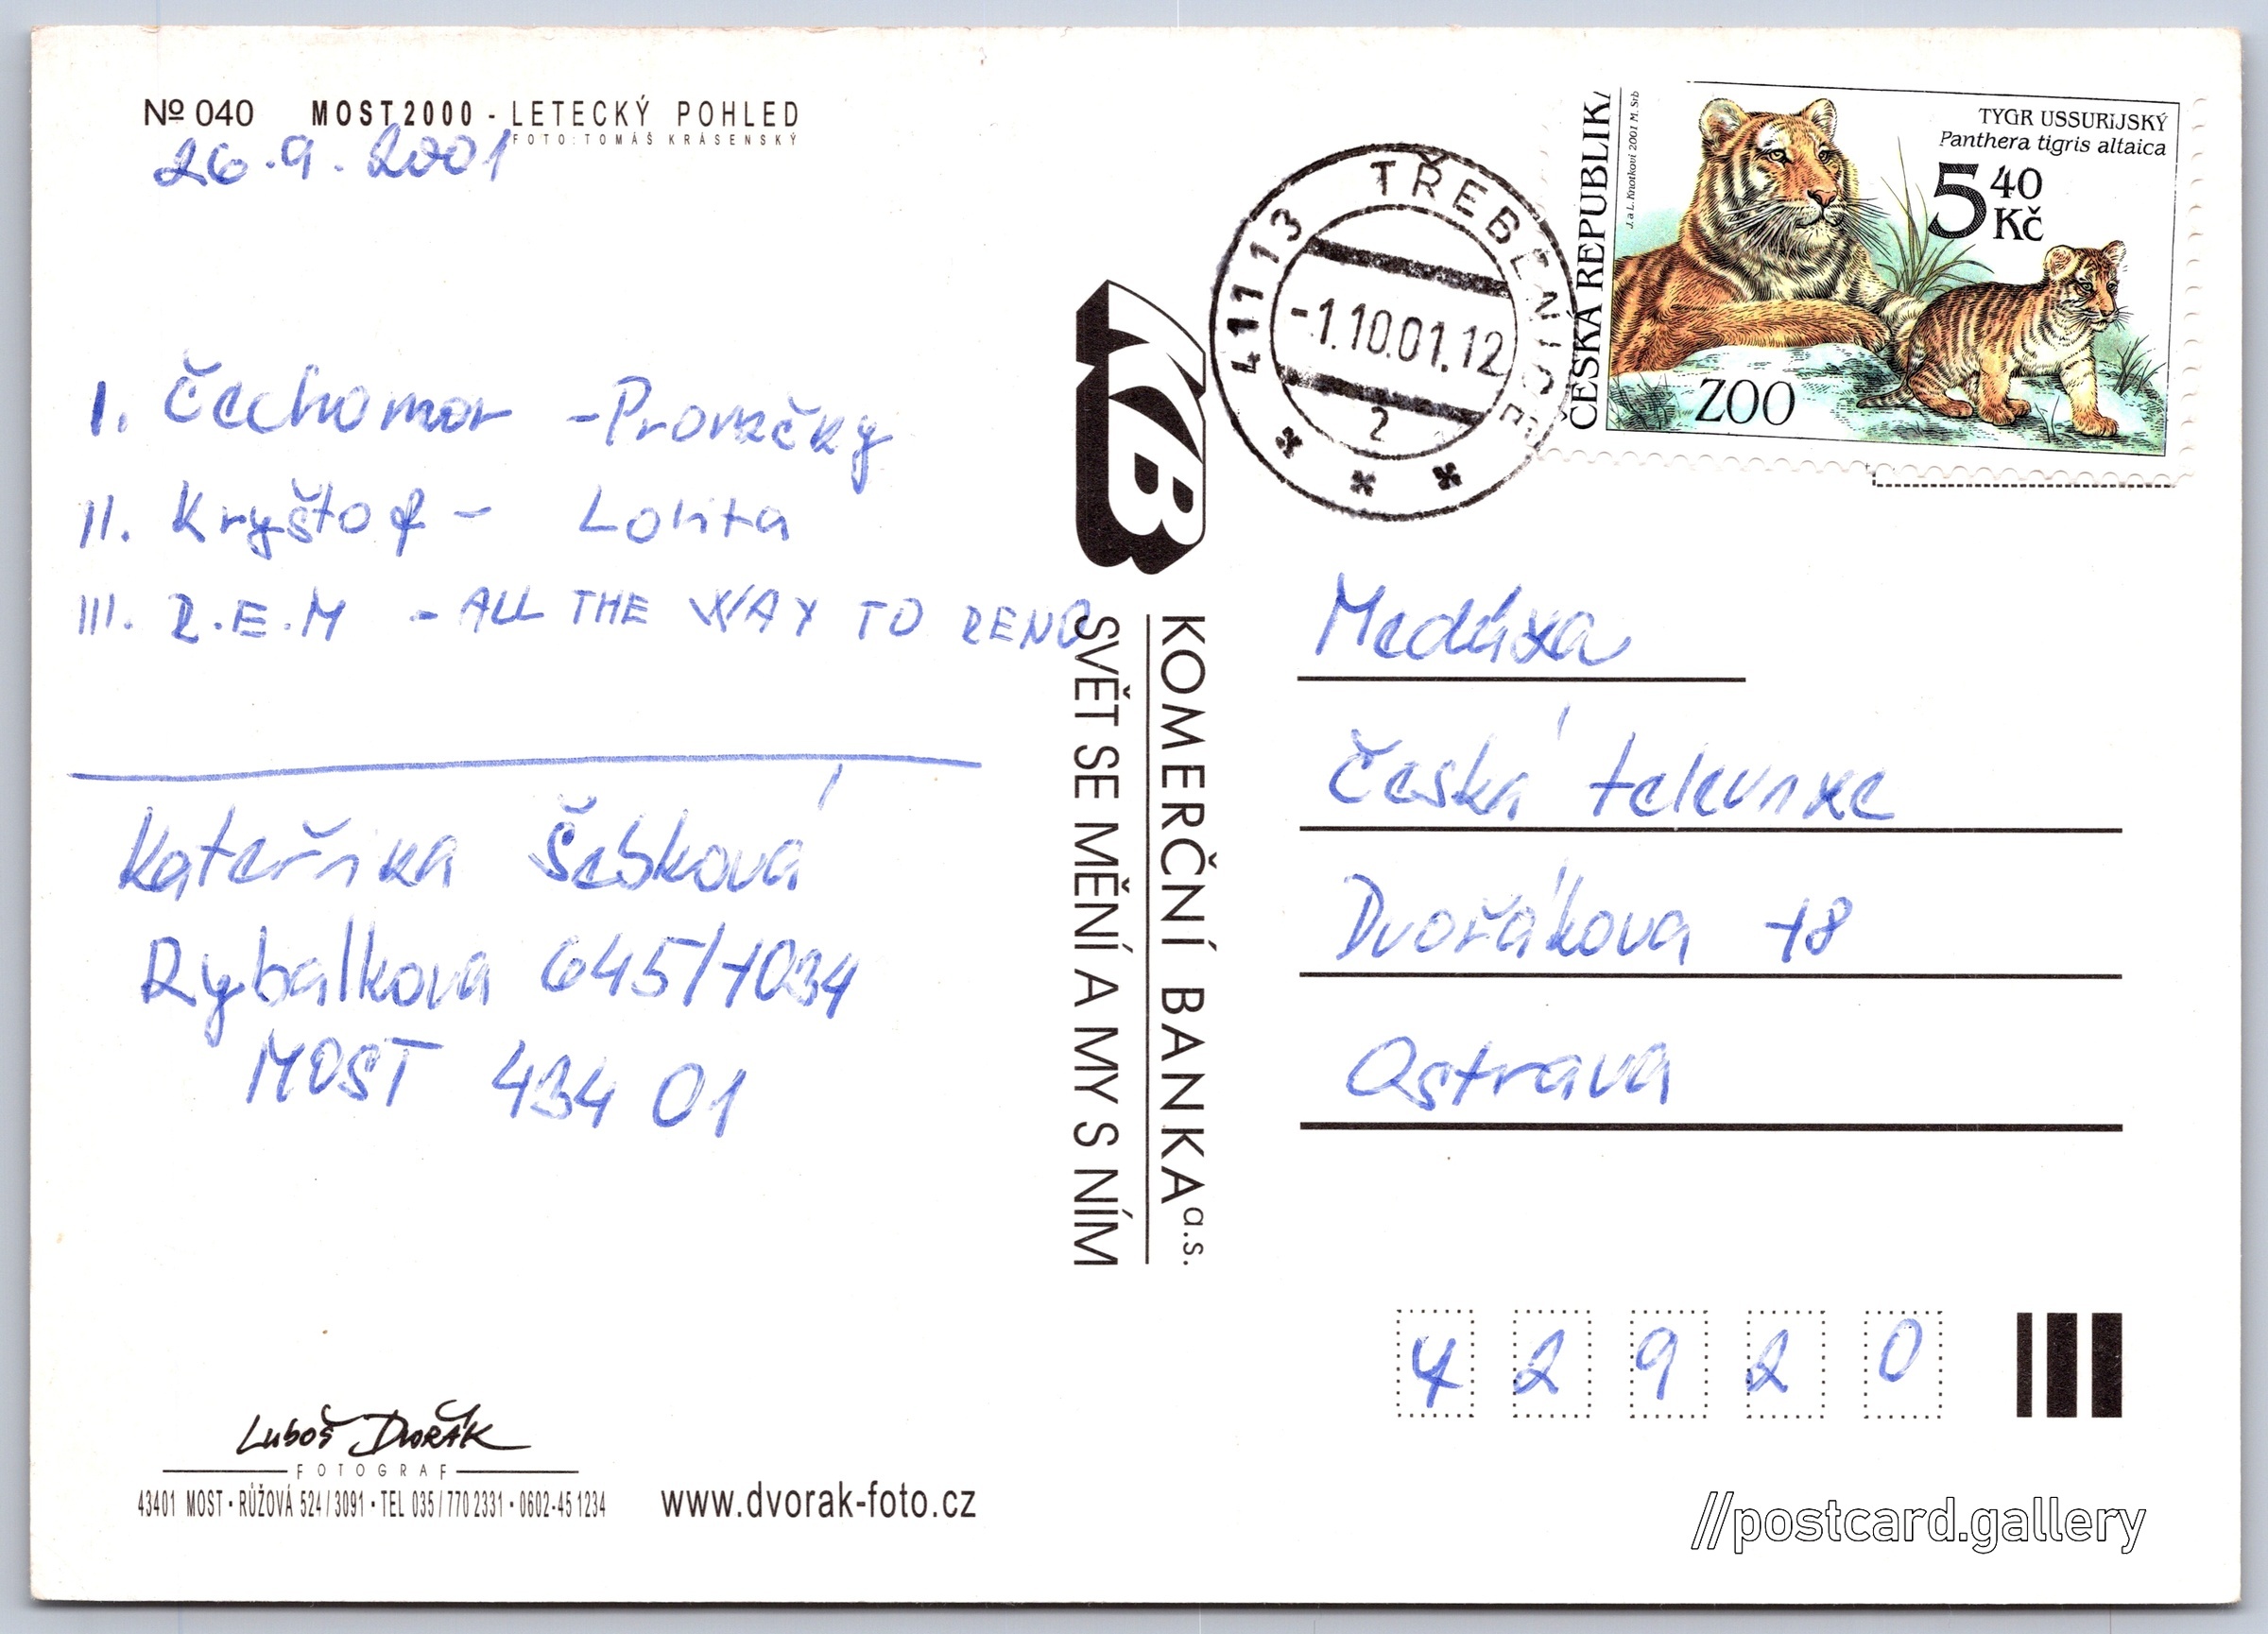 Nº 040 MOST 2000 - LETECKÝ POHLED
FOTO: TOMÁŠ KRÁSENSKÝ
26.9.2001
I. Čechomor - Proměny
II. Kryštof - Lolita
III. R.E.M - ALL THE WAY TO RENO
Kateřina Šebková
Rybalkova 645/1034
MOST 434 01
Luboš Dvořák
FOTOGRAF
43401 MOST • RŮŽOVÁ 524/3091 • TEL 035/770 2331 • 0602-45 1234
www.dvorak-foto.cz
KB
KOMERČNÍ BANKA a.s.
SVĚT SE MĚNÍ A MY S NÍM
411 13 TŘEBENICE
-1.10.01.12
2
ČESKÁ REPUBLIKA
J. a L. Knotkovi 2001 M. Srb
TYGR USSURIJSKÝ
Panthera tigris altaica
5 40 Kč
ZOO
Medúza
Česká televize
Dvořákova 18
Ostrava
42920
//postcard.gallery